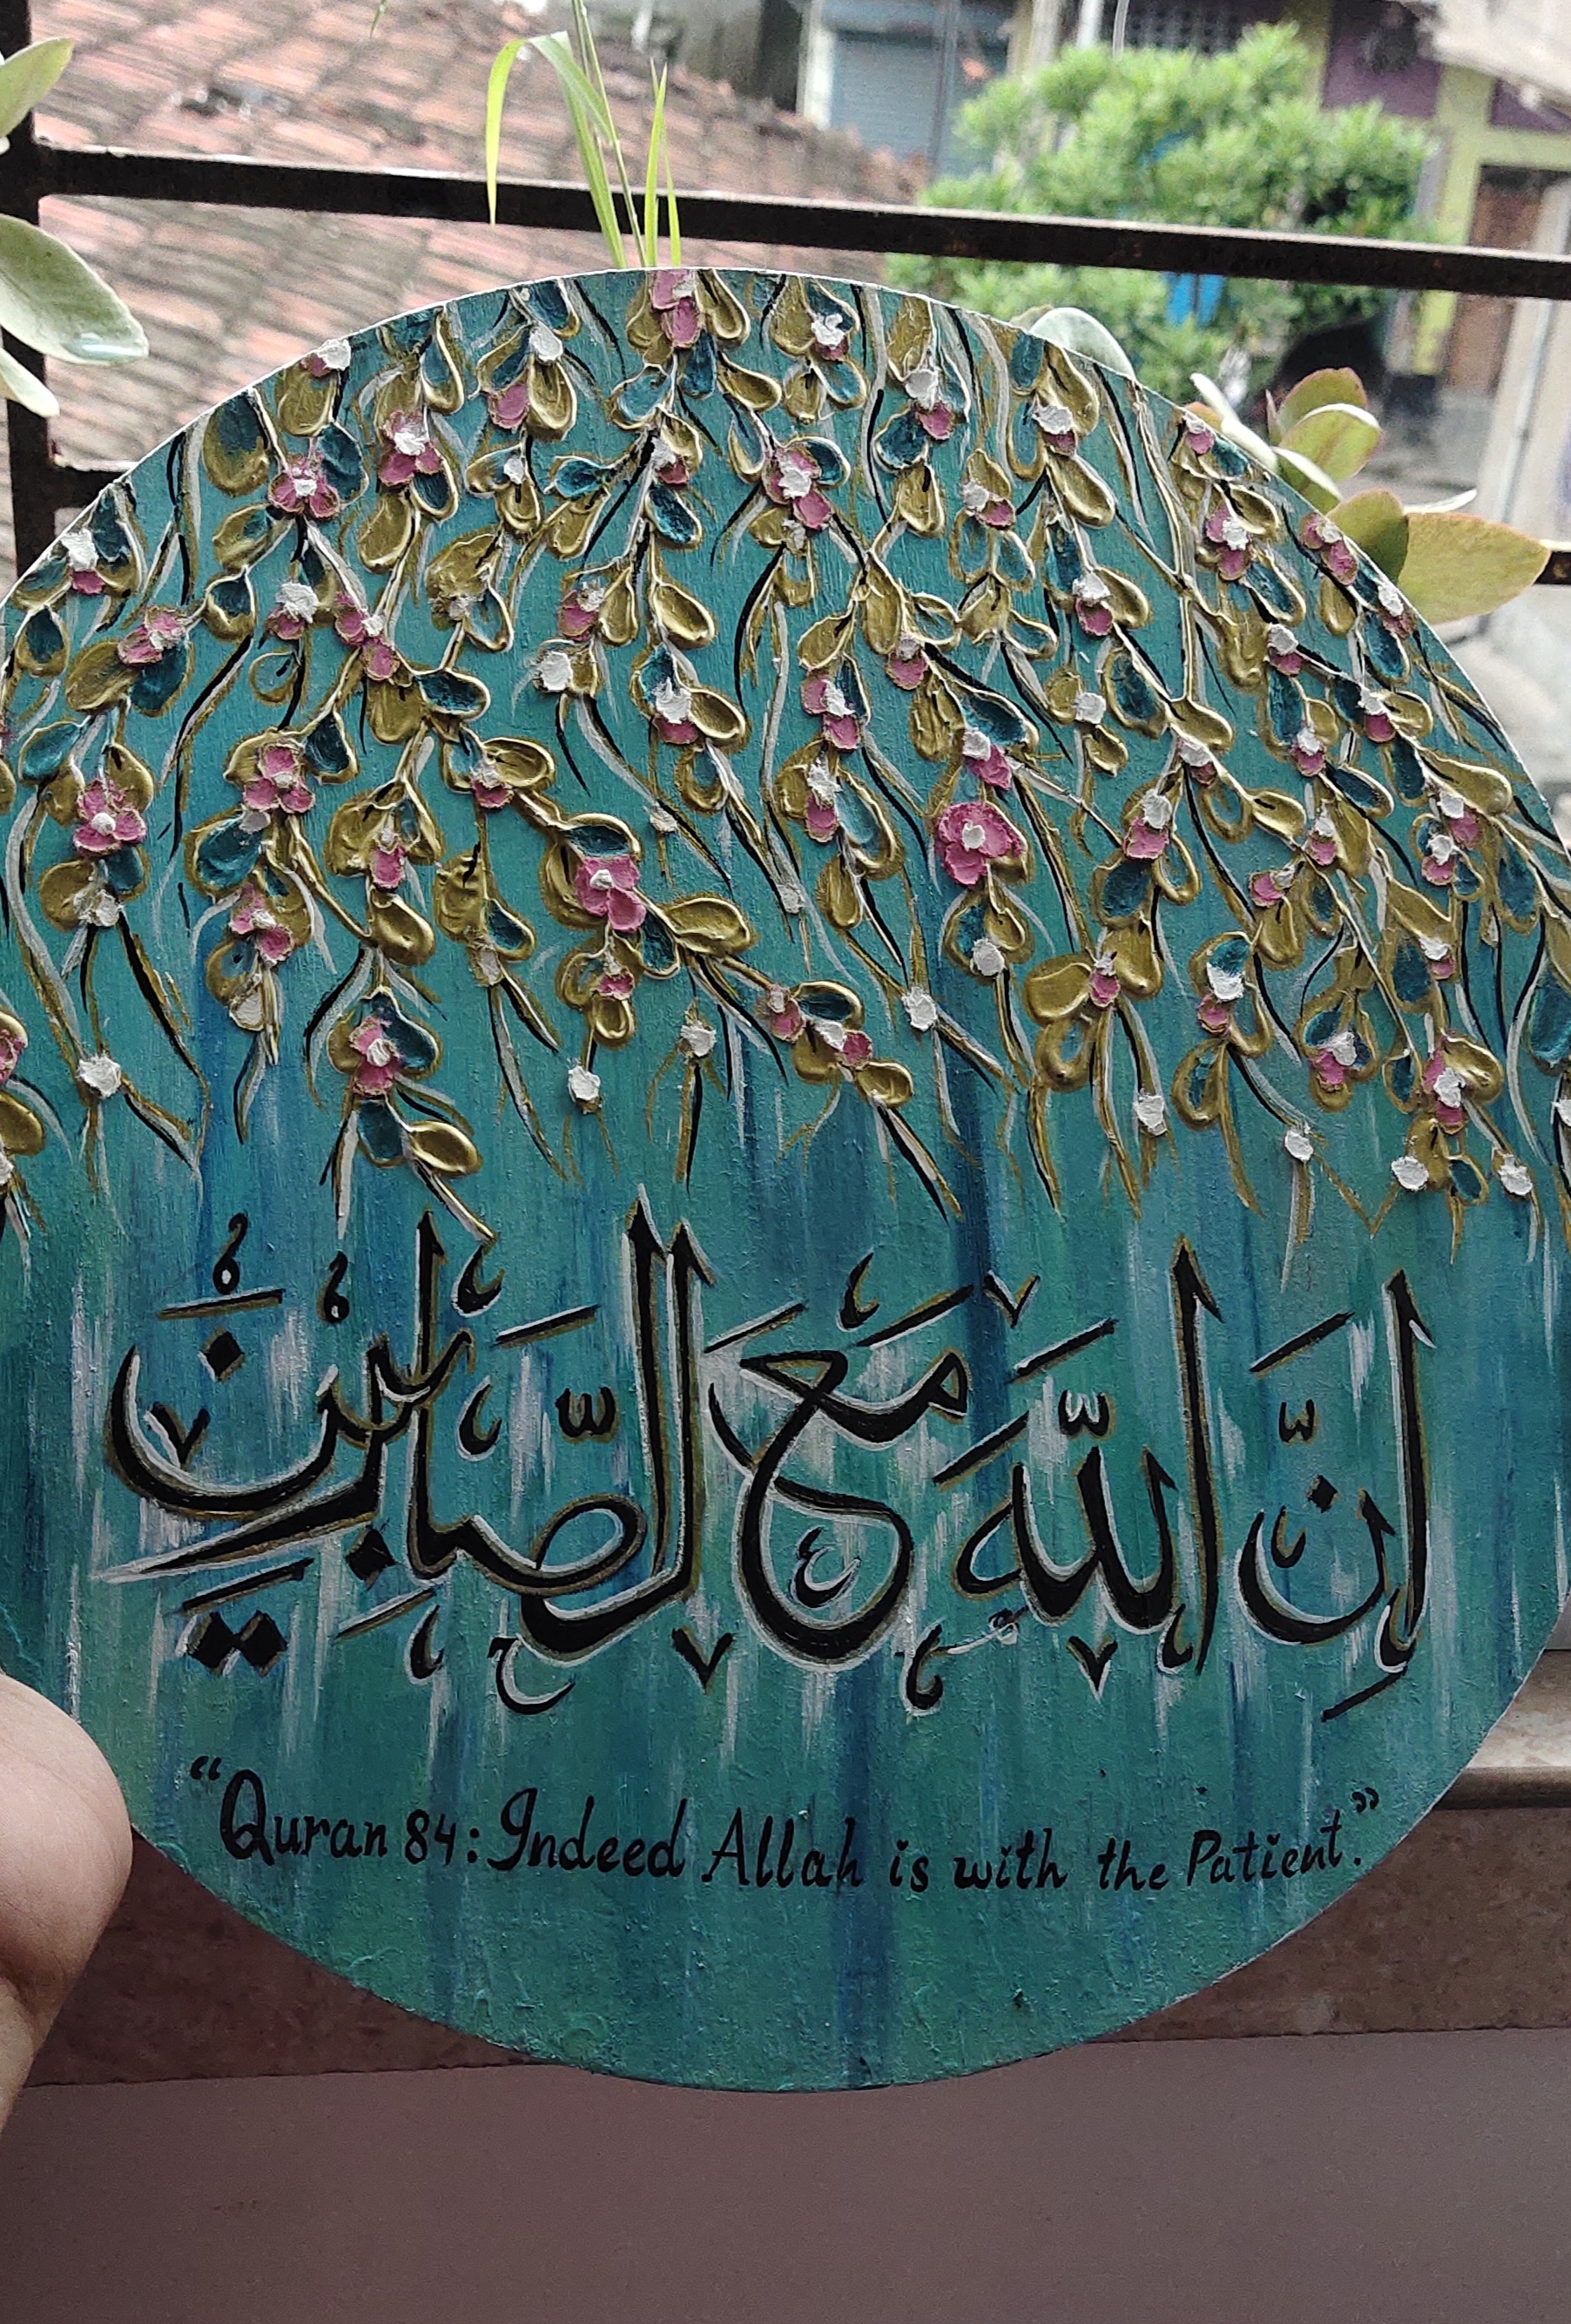 إِنَّ اللَّهَ مَعَ الصَّابِرِينَ
“Quran 84: Indeed Allah is with the Patient.”